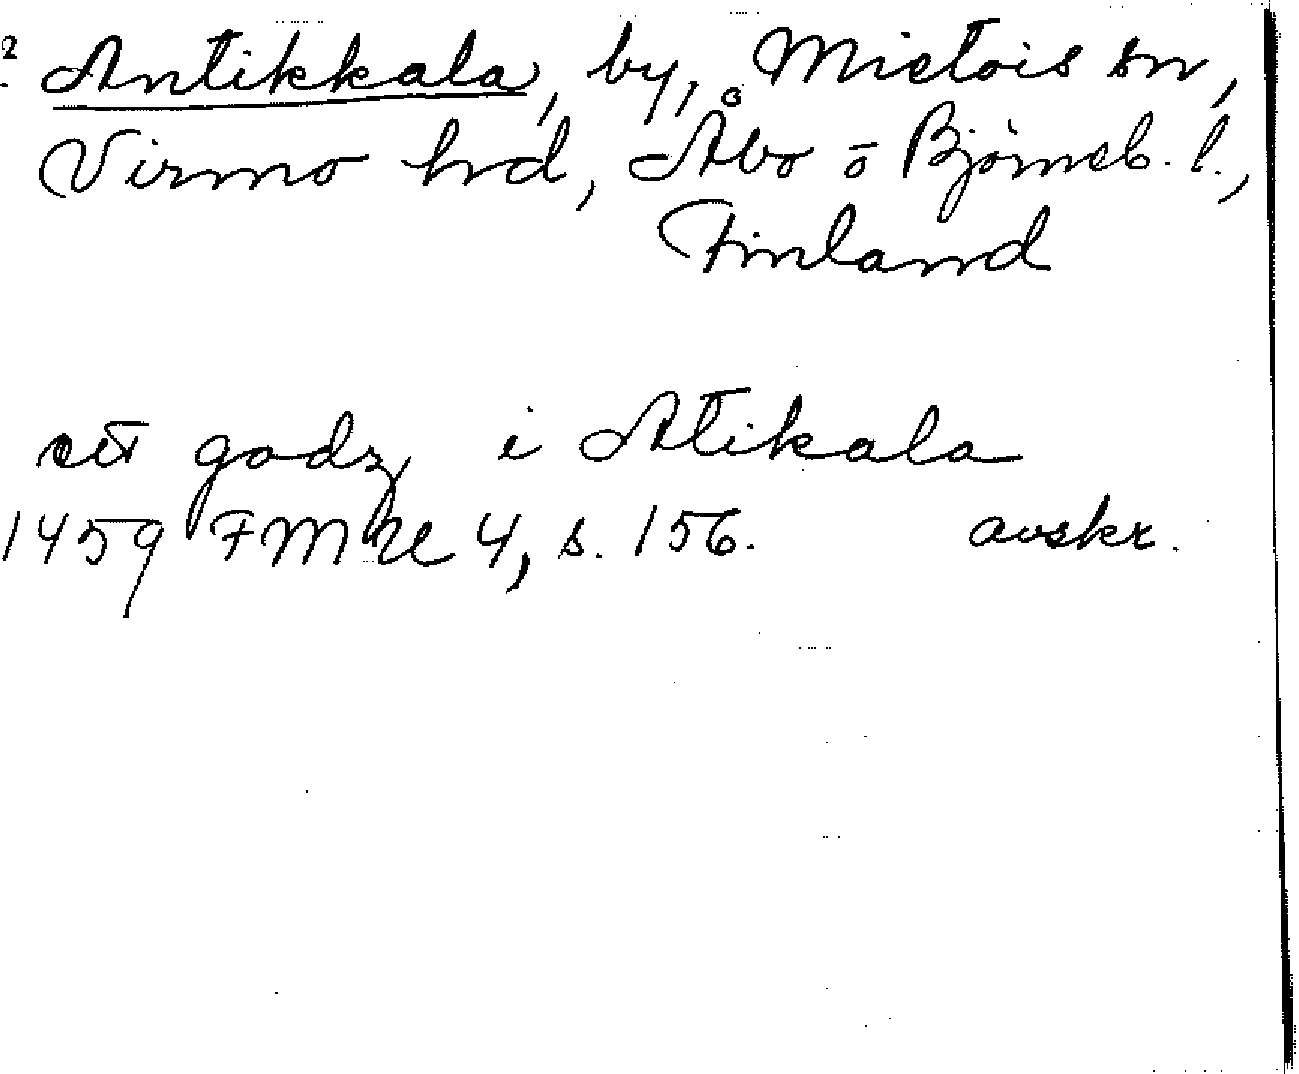 2 Antikkala, by, Mietois sn,
Virmo hd, Åbo o Björneb. l.,
Finland
ett godz i Atikala
1459 FMU 4, s. 156. avskr.